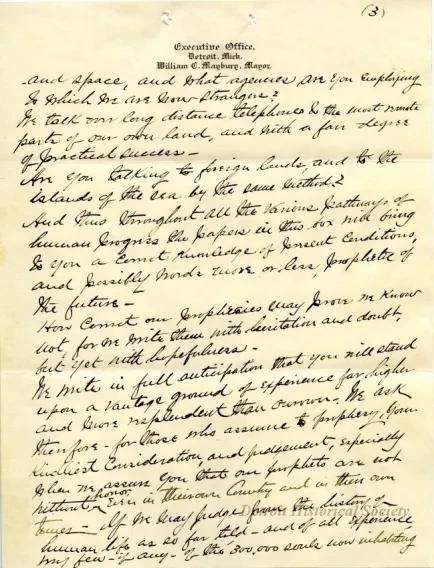 (3)
Executive Office,
Detroit, Mich.
William C. Maybury, Mayor.
and space, and what agencies are you employing
to which we are now strangers?
We talk over long distance telephones to the most remote
parts of our own land, and with a fair degree
of practical success -
Are you talking to foreign lands, and to the
islands of the sea by the same method?
And thus throughout all the various pathways of
human progress the papers in this box will bring
to you a correct knowledge of present conditions,
and possibly words more or less, prophetic of
the future -
How correct our prophecies may prove we know
not, for we write them with hesitation and doubt,
but yet with hopefulness -
We write in full anticipation that you will stand
upon a vantage ground of experience far higher
and more resplendent than our own. We ask
therefore - for those who assume to prophecy, your
kindliest consideration and judgement, especially
when we assure you that our prophets are not
without honor, even in their own Country and in their own
times - If we may judge from the history of
human life as so far told - and of all experience
very few - if any - of the 300,000 souls now inhabiting
Detroit Historical Society